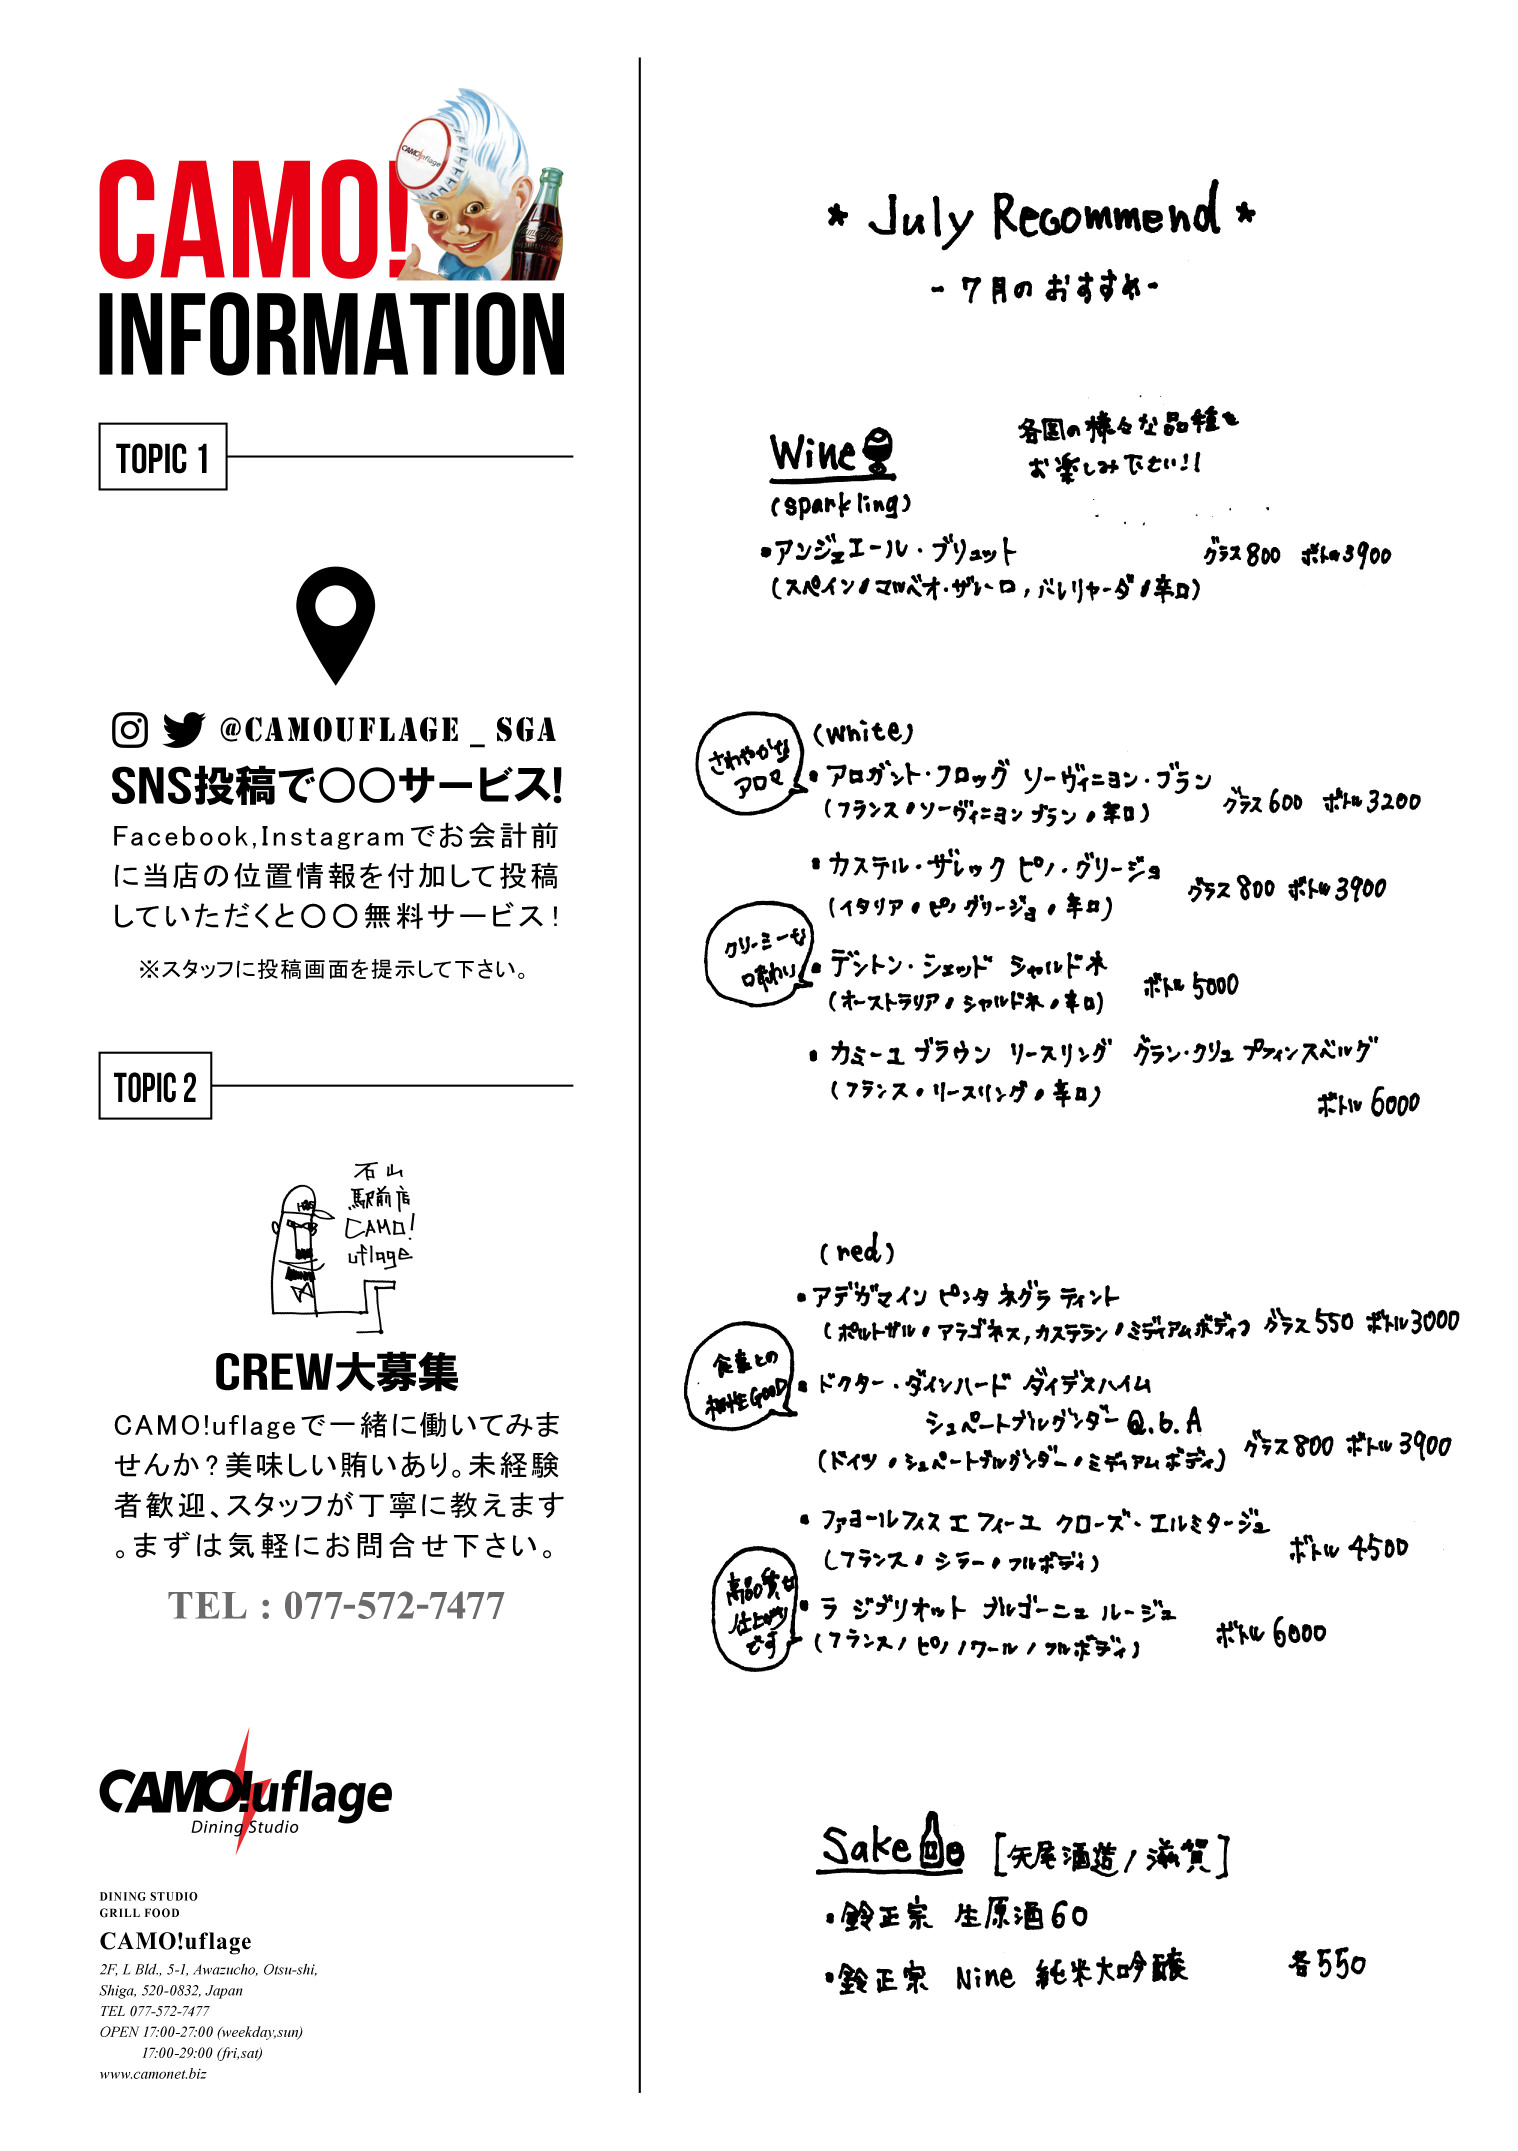 CAMO!
INFORMATION
TOPIC 1
@CAMOUFLAGE _ SGA
SNS投稿で〇〇サービス!
Facebook,Instagramでお会計前
に当店の位置情報を付加して投稿
していただくと〇〇無料サービス!
※スタッフに投稿画面を提示して下さい。
TOPIC 2
石山
駅前店
CAMO!
uflage
CREW大募集
CAMO!uflageで一緒に働いてみま
せんか?美味しい賄いあり。未経験
者歓迎、スタッフが丁寧に教えます
。まずは気軽にお問合せ下さい。
TEL : 077-572-7477
CAMO!uflage
Dining Studio
DINING STUDIO
GRILL FOOD
CAMO!uflage
2F, L Bld., 5-1, Awazucho, Otsu-shi,
Shiga, 520-0832, Japan
TEL 077-572-7477
OPEN 17:00-27:00 (weekday,sun)
17:00-29:00 (fri,sat)
www.camonet.biz
* July Recommend *
- 7月のおすすめ -
Wine
各国の様々な品種を
お楽しみ下さい!!
(sparkling)
・アンジェエール・ブリュット グラス800 ボトル3900
(スペイン/マカベオ・ザレーロ, パレリャーダ/辛口)
(White)
さわやかな
アロマ
・アロガント・フロッグ ソーヴィニヨン・ブラン
(フランス/ソーヴィニヨンブラン/辛口) グラス600 ボトル3200
・カステル・ザレック ピノ・グリージョ
(イタリア/ピノグリージョ/辛口) グラス800 ボトル3900
クリーミーな
口味わい
・デントン・シェッド シャルドネ
(オーストラリア/シャルドネ/辛口) ボトル5000
・カミーユ ブラウン リースリング グラン・クリュ プフィンスベルグ
(フランス/リースリング/辛口)
ボトル6000
(red)
・アデガマイン ピンタ ネグラ ティント
(ポルトガル/アラゴネス,カステラン/ミディアムボディ) グラス550 ボトル3000
食事との
相性GOOD
・ドクター・ダインハード ダイデスハイム
シュペートブルグンダー Q.b.A
(ドイツ/シュペートブルグンダー/ミディアムボディ) グラス800 ボトル3900
・ファヨールフィス エ フィーユ クローズ・エルミタージュ
(フランス/シラー/フルボディ) ボトル4500
高品質な
仕上がり
です
・ラ ジブリオット ブルゴーニュ ルージュ
(フランス/ピノノワール/フルボディ) ボトル6000
Sake [矢尾酒造/滋賀]
・鈴正宗 生原酒60
・鈴正宗 Nine 純米大吟醸 各550